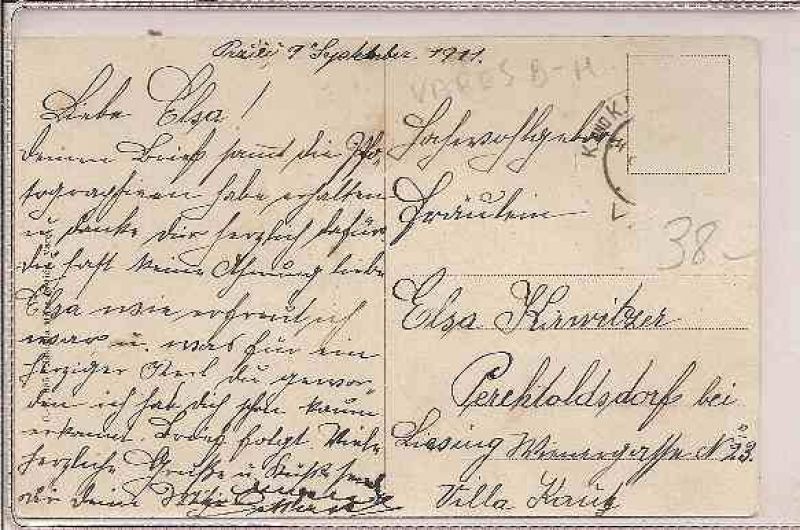 9 September. 1911.
VARES B-H.
Liebe Elsa!
Deinen Brief sammt die Pho-
tographieen habe erhalten
u danke dir herzlich dafür.
du hast keine Ahnung liebe
Elsa wie erfreut ich
war u. was für ein
herziger Kerl du gewor
den ich hab dich schon kaum
erkannt. Brief folgt. Viele
herzliche Grüße u. Küsse
dir deine
Hochwohlgeboren
Fräulein
38-
Elsa Kawitzer
Perchtoldsdorf bei
Liesing Wienergasse No 23.
Villa